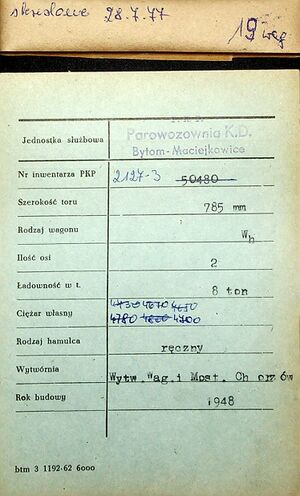 skreślono 28.7.77
19 wag
P.K.P.
Parowozownia K.D.
Bytom-Maciejkowice
Jednostka służbowa
Nr inwentarza PKP 2127-3 50480
Szerokość toru 785 mm
Rodzaj wagonu Wh
Ilość osi 2
Ładowność w t. 8 ton
Ciężar własny 4730 4670 4650
4780 4700
Rodzaj hamulca ręczny
Wytwórnia Wytw.Wag.i Most. Ch orzów
Rok budowy 1948
btm 3 1192-62 6000